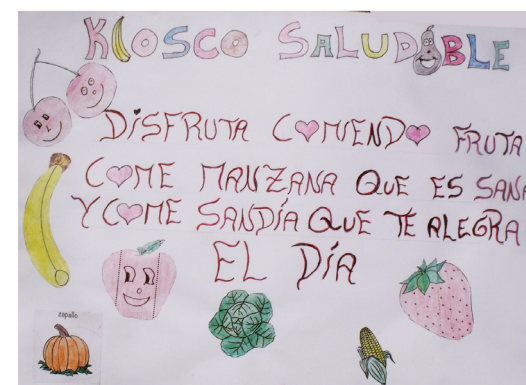 KIOSCO SALUDABLE
DISFRUTA COMIENDO FRUTA
COME MANZANA QUE ES SANA
Y COME SANDÍA QUE TE ALEGRA
EL DÍA
zapallo